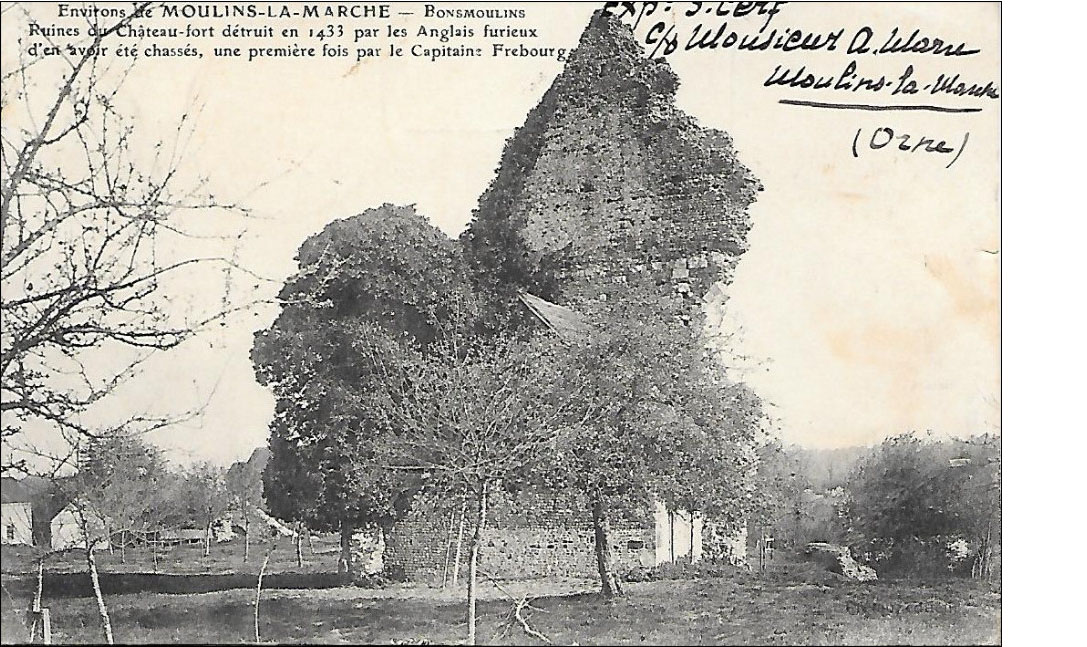 Environs de MOULINS-LA-MARCHE — BONSMOULINS
Ruines du Château-fort détruit en 1433 par les Anglais furieux
d'en avoir été chassés, une première fois par le Capitaine Frebourg
Exp. S. Cerf
c/o Monsieur A.
Moulins-la-Marche
(Orne)